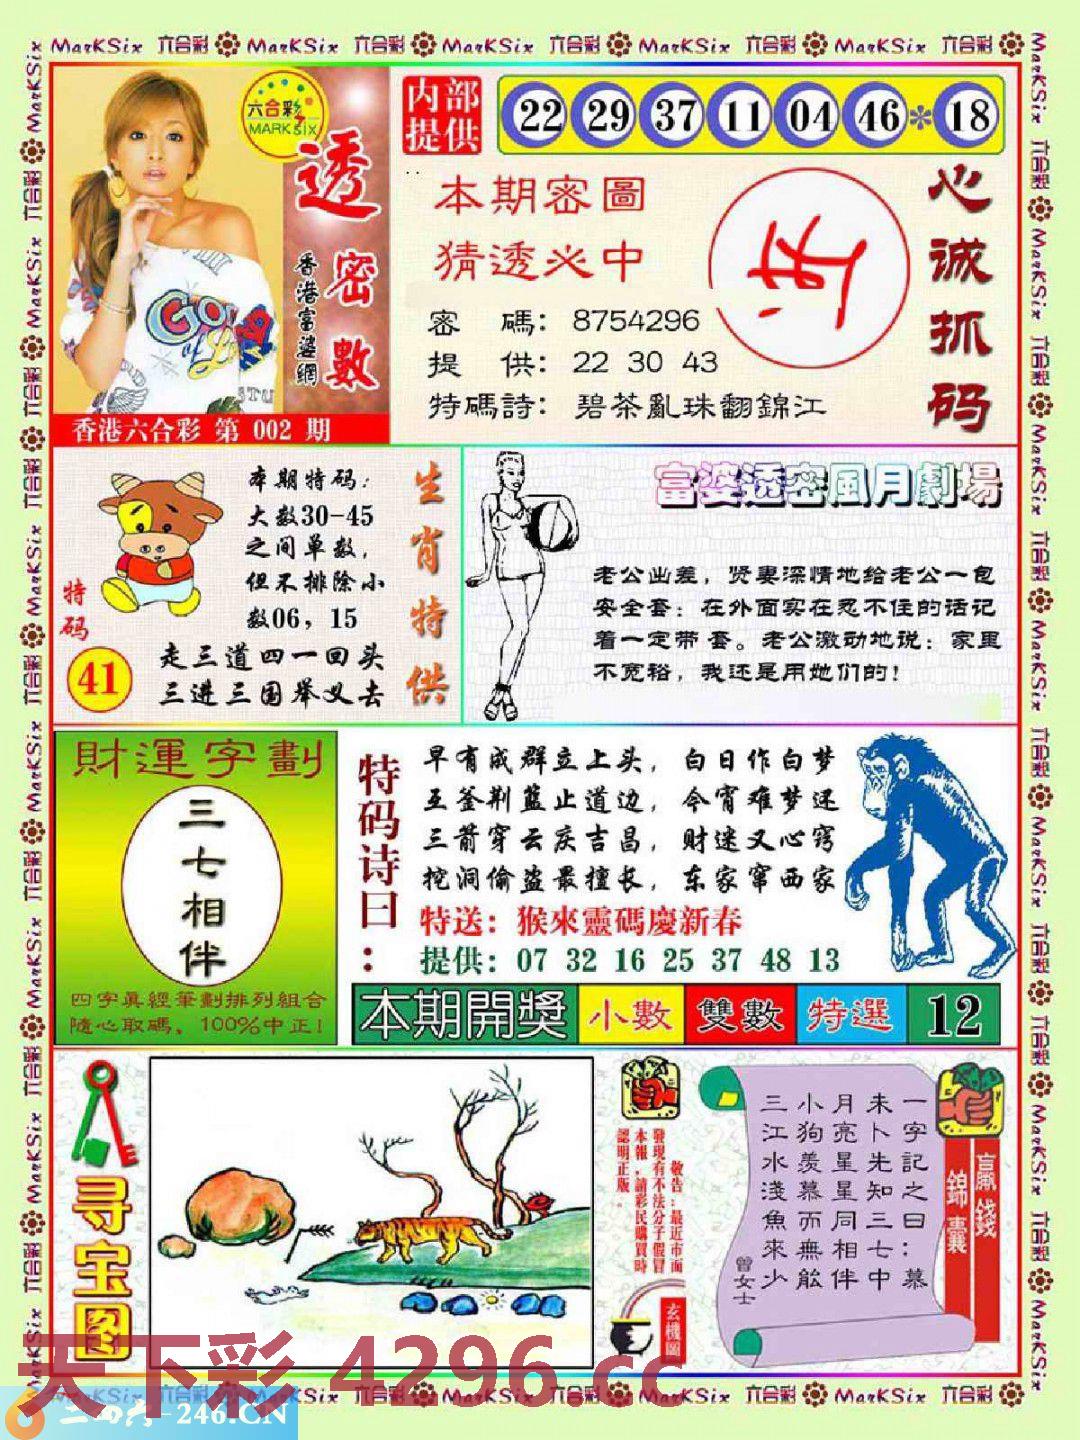 MarKSix 六合彩 MarKSix 六合彩 MarKSix 六合彩 MarKSix 六合彩 MarKSix 六合彩
六合彩
MARK SIX
透密數
香港富婆網
香港六合彩 第 002 期
内部
提供
22 29 37 11 04 46 * 18
本期密圖
猜透必中
密 碼：8754296
提 供：22 30 43
特碼詩：碧茶亂珠翻錦江
心诚抓码
本期特码：
大数30-45
之间单数，
但不排除小
数06，15
特码
41
走三道四一回头
三进三国举义去
生肖特供
富婆透密風月劇場
老公出差，贤妻深情地给老公一包
安全套：在外面实在忍不住的话记
着一定带 套。老公激动地说：家里
不宽裕，我还是用她们的！
財運字劃
三七相伴
四字真經筆劃排列組合
隨心取碼，100%中正！
特码诗曰：
早有成群立上头，白日作白梦
互釜荆蓝止道边，今宵难梦还
三箭穿云庆吉昌，财迷又心窍
挖洞偷盗最擅长，东家窜西家
特送：猴來靈碼慶新春
提供：07 32 16 25 37 48 13
本期開獎 小數 雙數 特選 12
寻宝图
敬告：最近市面
發現有不法分子假冒
本報，請彩民購買時
認明正版。
玄機圖
贏錢
錦囊
一字記之曰：慕
未卜先知三七中
月亮星星同相伴
小狗羨慕而無能
三江水淺魚來少
曾女士
天下彩 4296.cc
246.CN
MarKSix 六合彩 MarKSix 六合彩 MarKSix 六合彩 MarKSix 六合彩